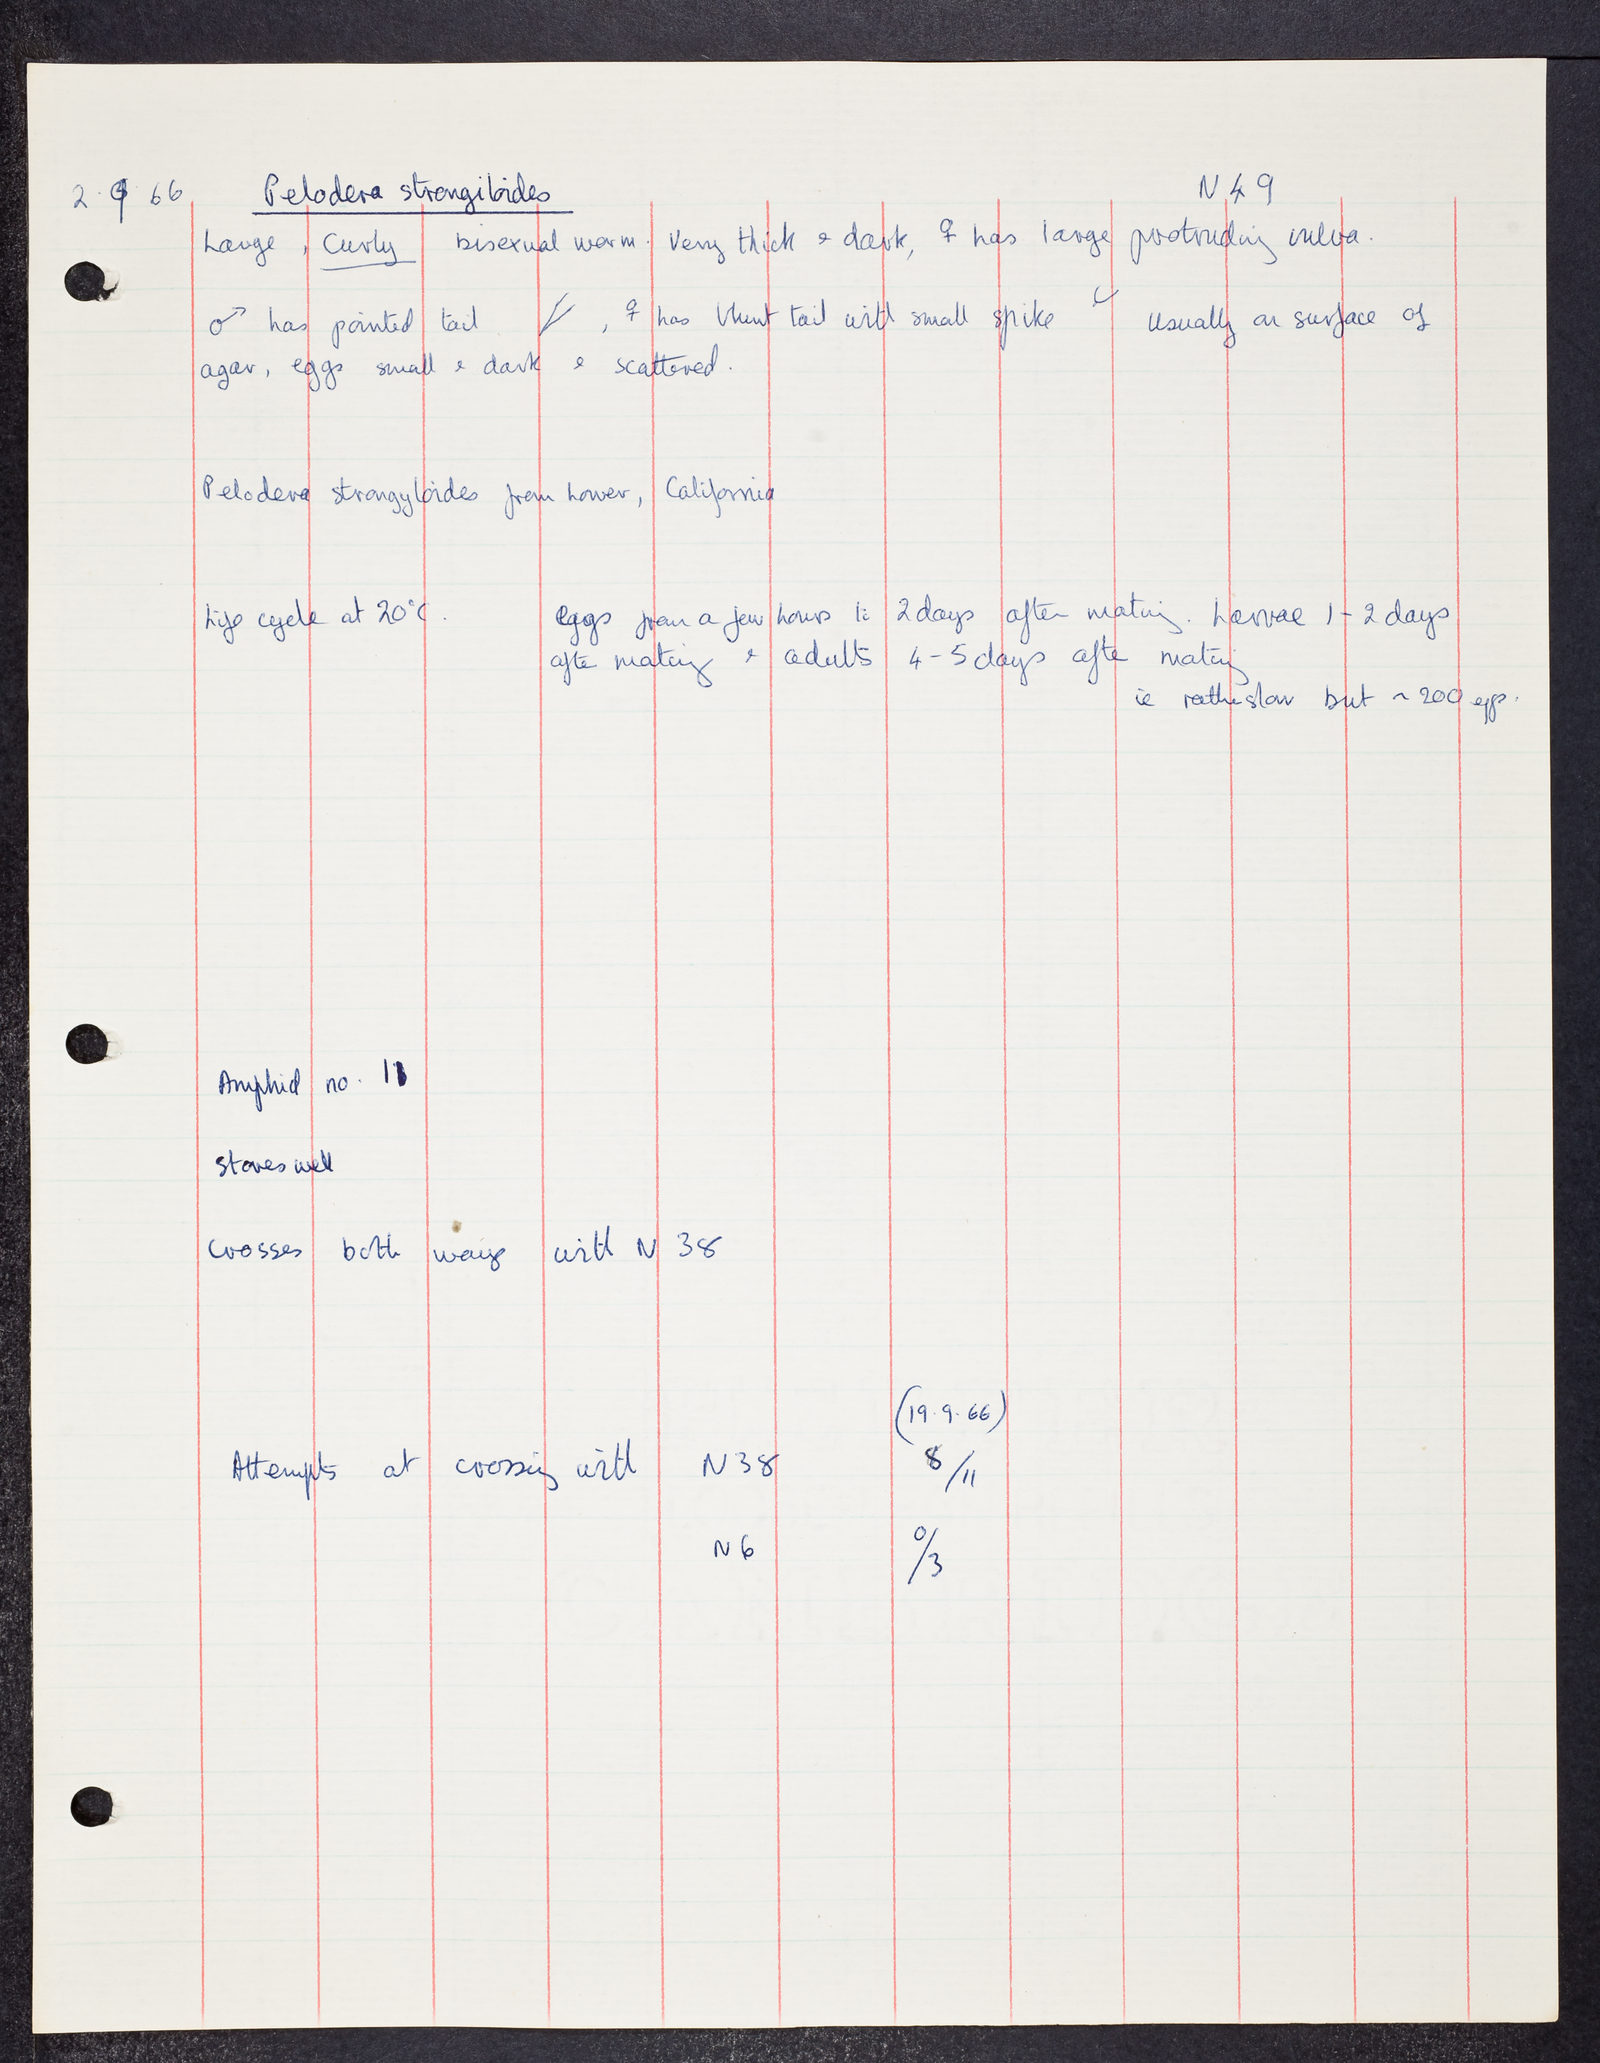 2.9.66 Pelodera strongiloides N49
Large, Curly bisexual worm. Very thick & dark, ♀ has large protruding vulva.
♂ has pointed tail , ♀ has blunt tail with small spike Usually on surface of
agar, eggs small & dark & scattered.
Pelodera strongyloides from Lower, California
Life cycle at 20°C. Eggs from a few hours to 2 days after mating. Larvae 1-2 days
after mating & adults 4-5 days after mating
ie rather slow but ~200 eggs.
Amphid no. 11
Stores well
Crosses both ways with N 38
(19.9.66)
Attempts at crossing with N38 8/11
N6 0/3